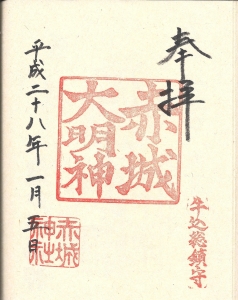 奉拝
牛込総鎮守
赤城
大明神
赤城
神社
平成二十八年一月五日